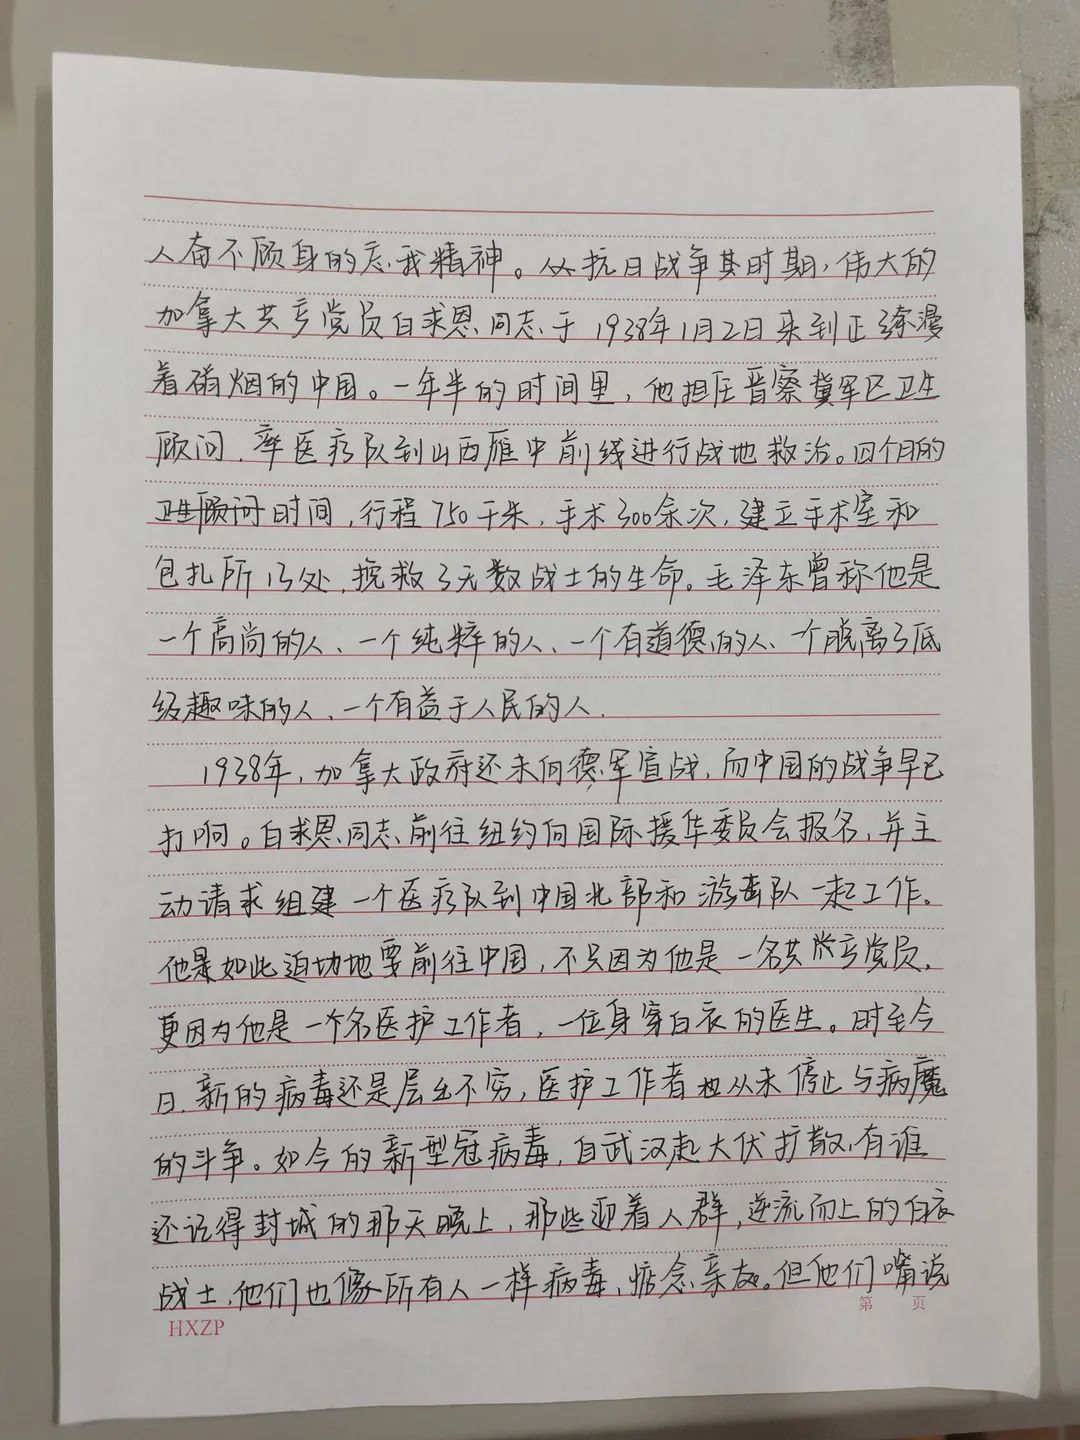 人奋不顾身的忘我精神。从抗日战争其时期，伟大的
加拿大共产党员白求恩同志于1938年1月2日来到正弥漫
着硝烟的中国。一年半的时间里，他担任晋察冀军区卫生
顾问，率医疗队到山西雁中前线进行战地救治。四个月的
卫生顾问时间，行程750千米，手术300余次，建立手术室和
包扎所13处，挽救了无数战士的生命。毛泽东曾称他是
一个高尚的人、一个纯粹的人、一个有道德的人、一个脱离了低
级趣味的人、一个有益于人民的人.
1938年，加拿大政府还未向德军宣战，而中国的战争早已
打响。白求恩同志前往纽约向国际援华委员会报名，并主
动请求组建一个医疗队到中国北部和游击队一起工作。
他是如此迫切地要前往中国，不只因为他是一名共产党员，
更因为他是一个名医护工作者，一位身穿白衣的医生。时至今
日，新的病毒还是层出不穷，医护工作者也从未停止与病魔
的斗争。如今的新型冠病毒，自武汉起大伏扩散，有谁
还记得封城的那天晚上，那些迎着人群，逆流而上的白衣
战士，他们也像所有人一样病毒，惦念亲友。但他们嘴说
第 页
HXZP